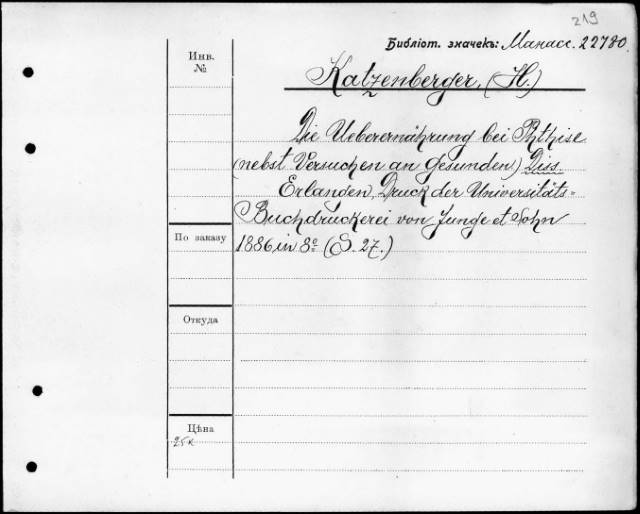 219
Библіот. значекъ: Манасс. 22780.
Инв. №
Katzenberger, (H.)
Die Ueberernährung bei Phthise
(nebst Versuchen an Gesunden) Diss.
Erlangen, Druck der Universitäts=
Buchdruckerei von Junge et Sohn
По заказу
1886 in 8º (S. 27.)
Откуда
Цѣна
25к